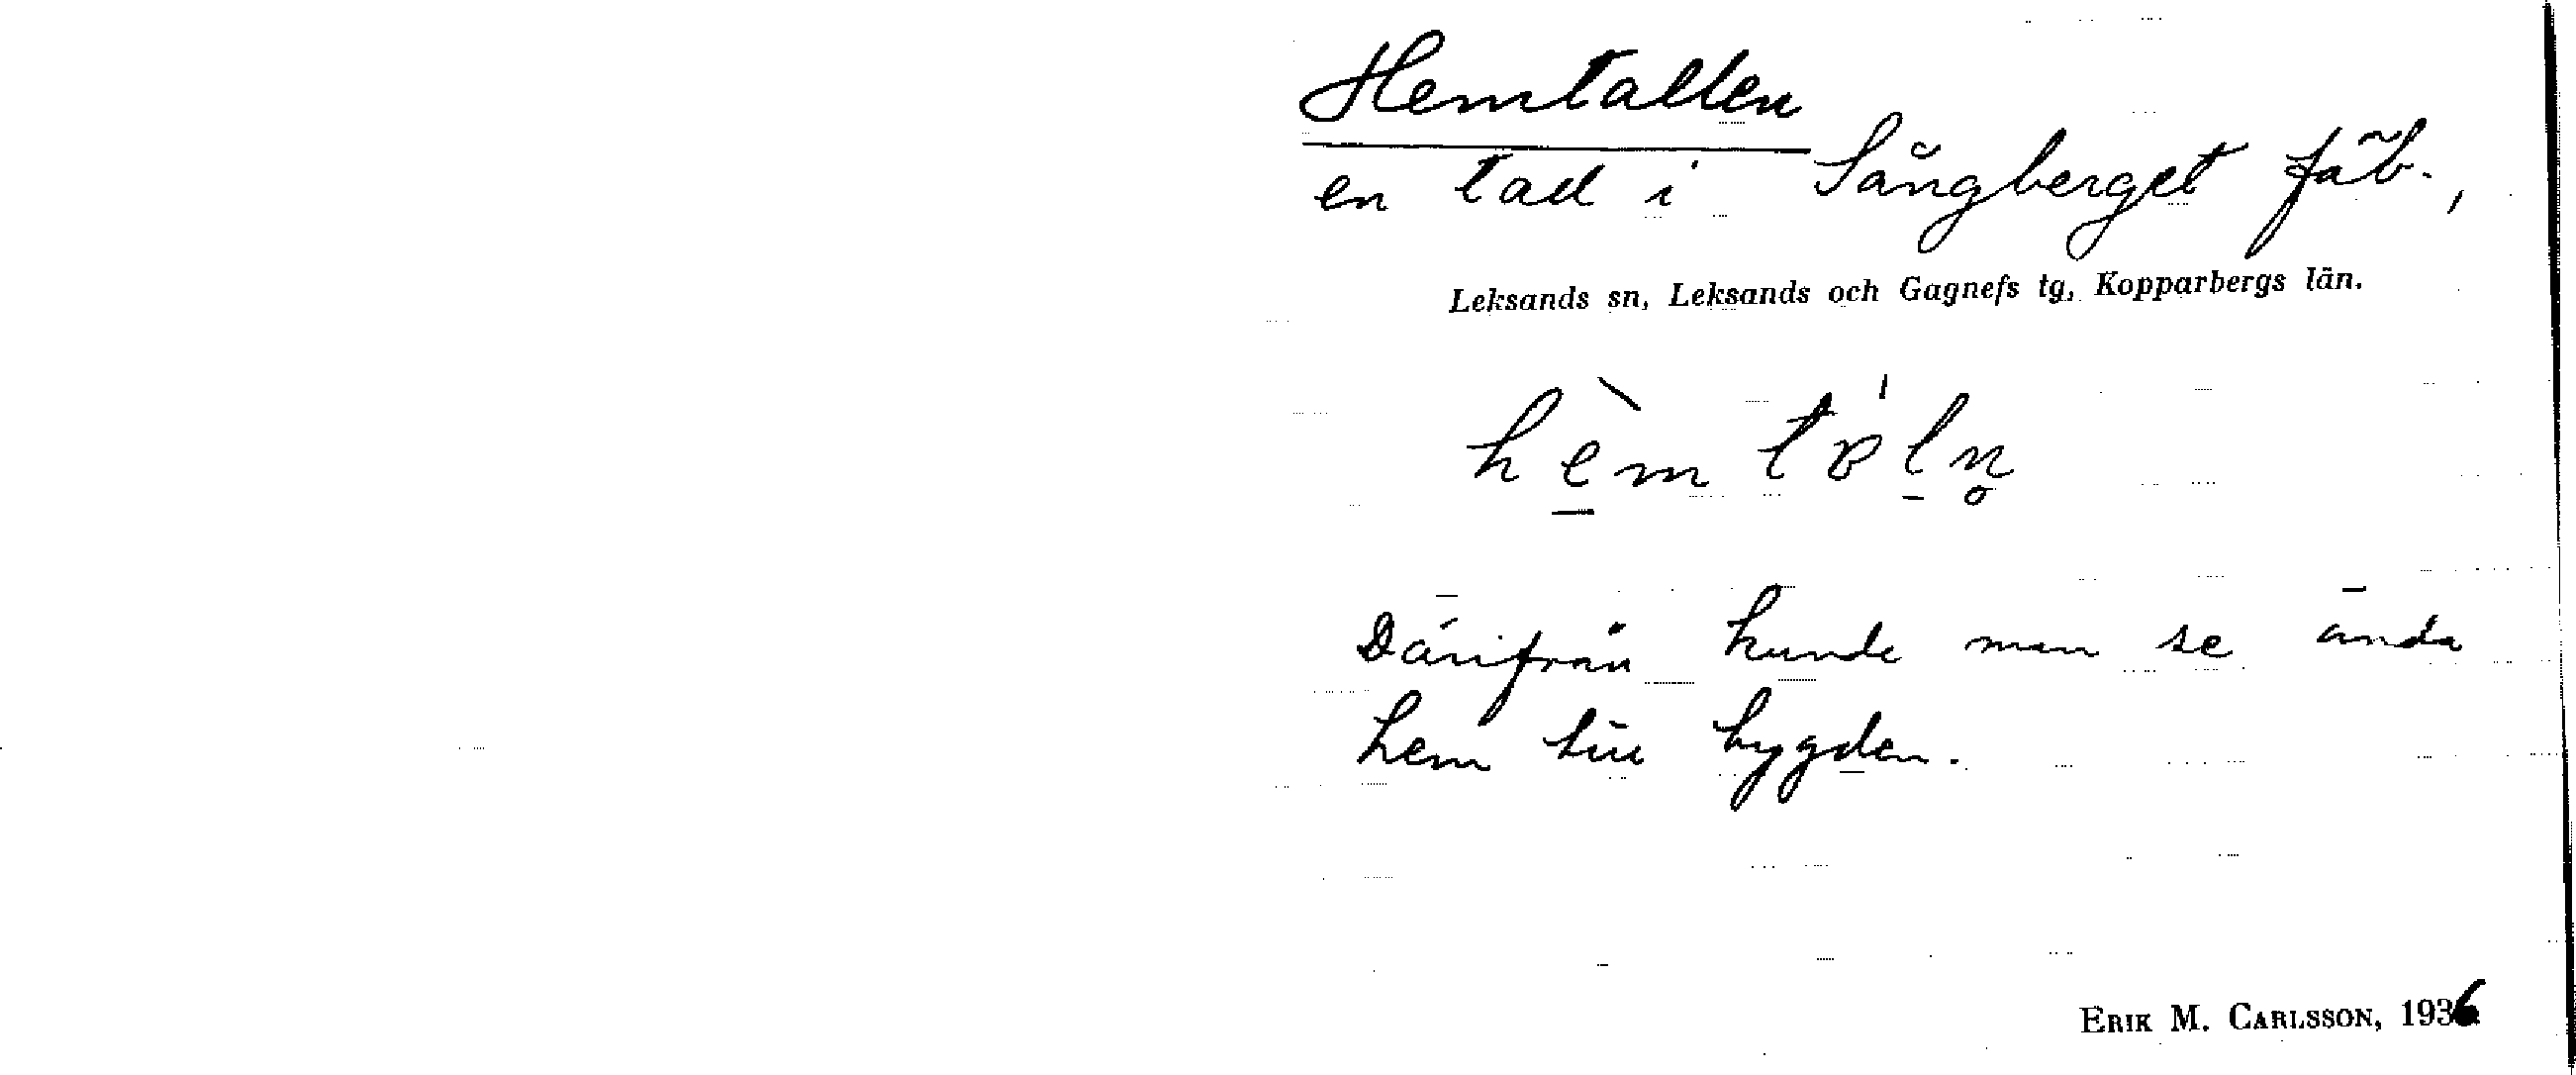 Hemtallen
en tall i Sångberget fäb.,
Leksands sn, Leksands och Gagnefs tg, Kopparbergs län.
hè̱mtɒ́ḻn̥
Därifrån kunde man se ända
hem till bygden.
ERIK M. CARLSSON, 1936